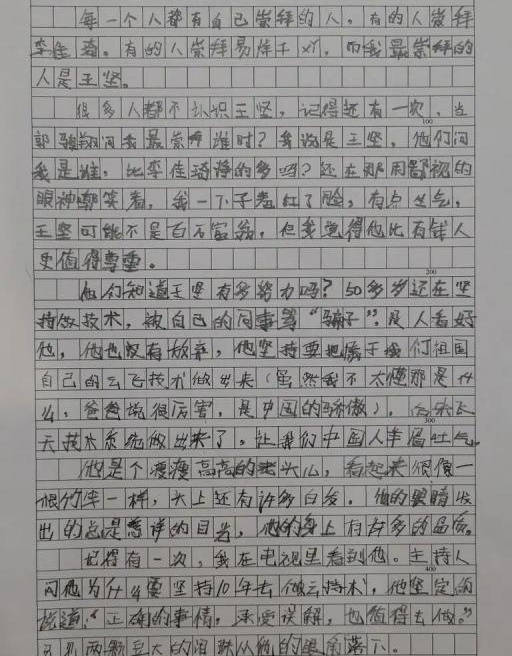 每一个人都有自己崇拜的人。有的人崇拜
李佳琦。有的人崇拜易烊千玺。而我最崇拜的
人是王坚。
很多人都不认识王坚，记得还有一次，当
郭骏翔问我最崇拜谁时？我说是王坚，他们问
我是谁，比李佳琦挣的多吗？还在那用鄙视的
眼神嘲笑着，我一下子羞红了脸，有点生气，
王坚可能不是百万富翁，但我觉得他比有钱人
更值得尊重。
100
200
他们知道王坚有多努力吗？50多岁还在坚
持做技术，被自己的同事骂“骗子”，没人看好
他，他也没有放弃，他坚持要把属于我们祖国
自己的云飞技术做出来（虽然我不太懂那是什
么，爸爸说很厉害，是中国的骄傲），合来飞
天技术系统做出来了，让我们中国人扬眉吐气
300
他是个瘦瘦高高的老头儿，看起来很像一
根竹竿一样，头上还有许多白发。他的眼睛发
出的总是慈祥的目光，他的身上有许多的品质。
记得有一次，我在电视里看到他。主持人
400
问他为什么要坚持10年去做云技术，他坚定的
说道：“正确的事情，承受误解，也值得去做。”
两颗豆大的泪珠从他的眼角落下。